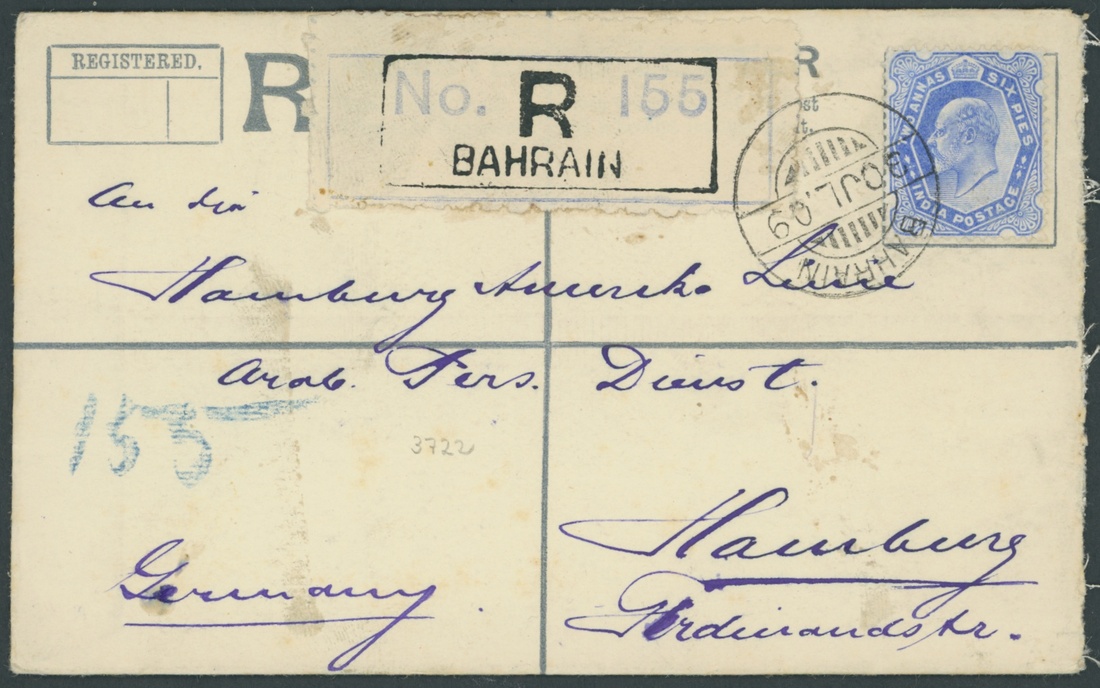 REGISTERED.
R
No. R 155
BAHRAIN
R
TWO ANNAS SIX PIES
INDIA POSTAGE
BAHRAIN
30 JUL. 09
An die
Hamburg Amerika Linie
Arab. Pers. Dienst.
155
3722
Hamburg
Ferdinandstr.
Germany